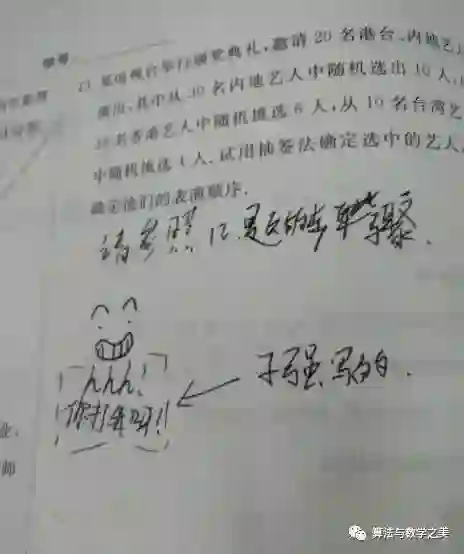 13. 某电视台举行颁奖典礼,邀请20名港台、内地艺人
演出,其中从30名内地艺人中随机选出10人,从
18名香港艺人中随机挑选6人,从10名台湾艺
中随机挑选4人.试用抽签法确定选中的艺人,
确定他们的表演顺序.
请参照12题的步骤.
hhh.
你打我呀!!
子强写的.
业,
师
算法与数学之美